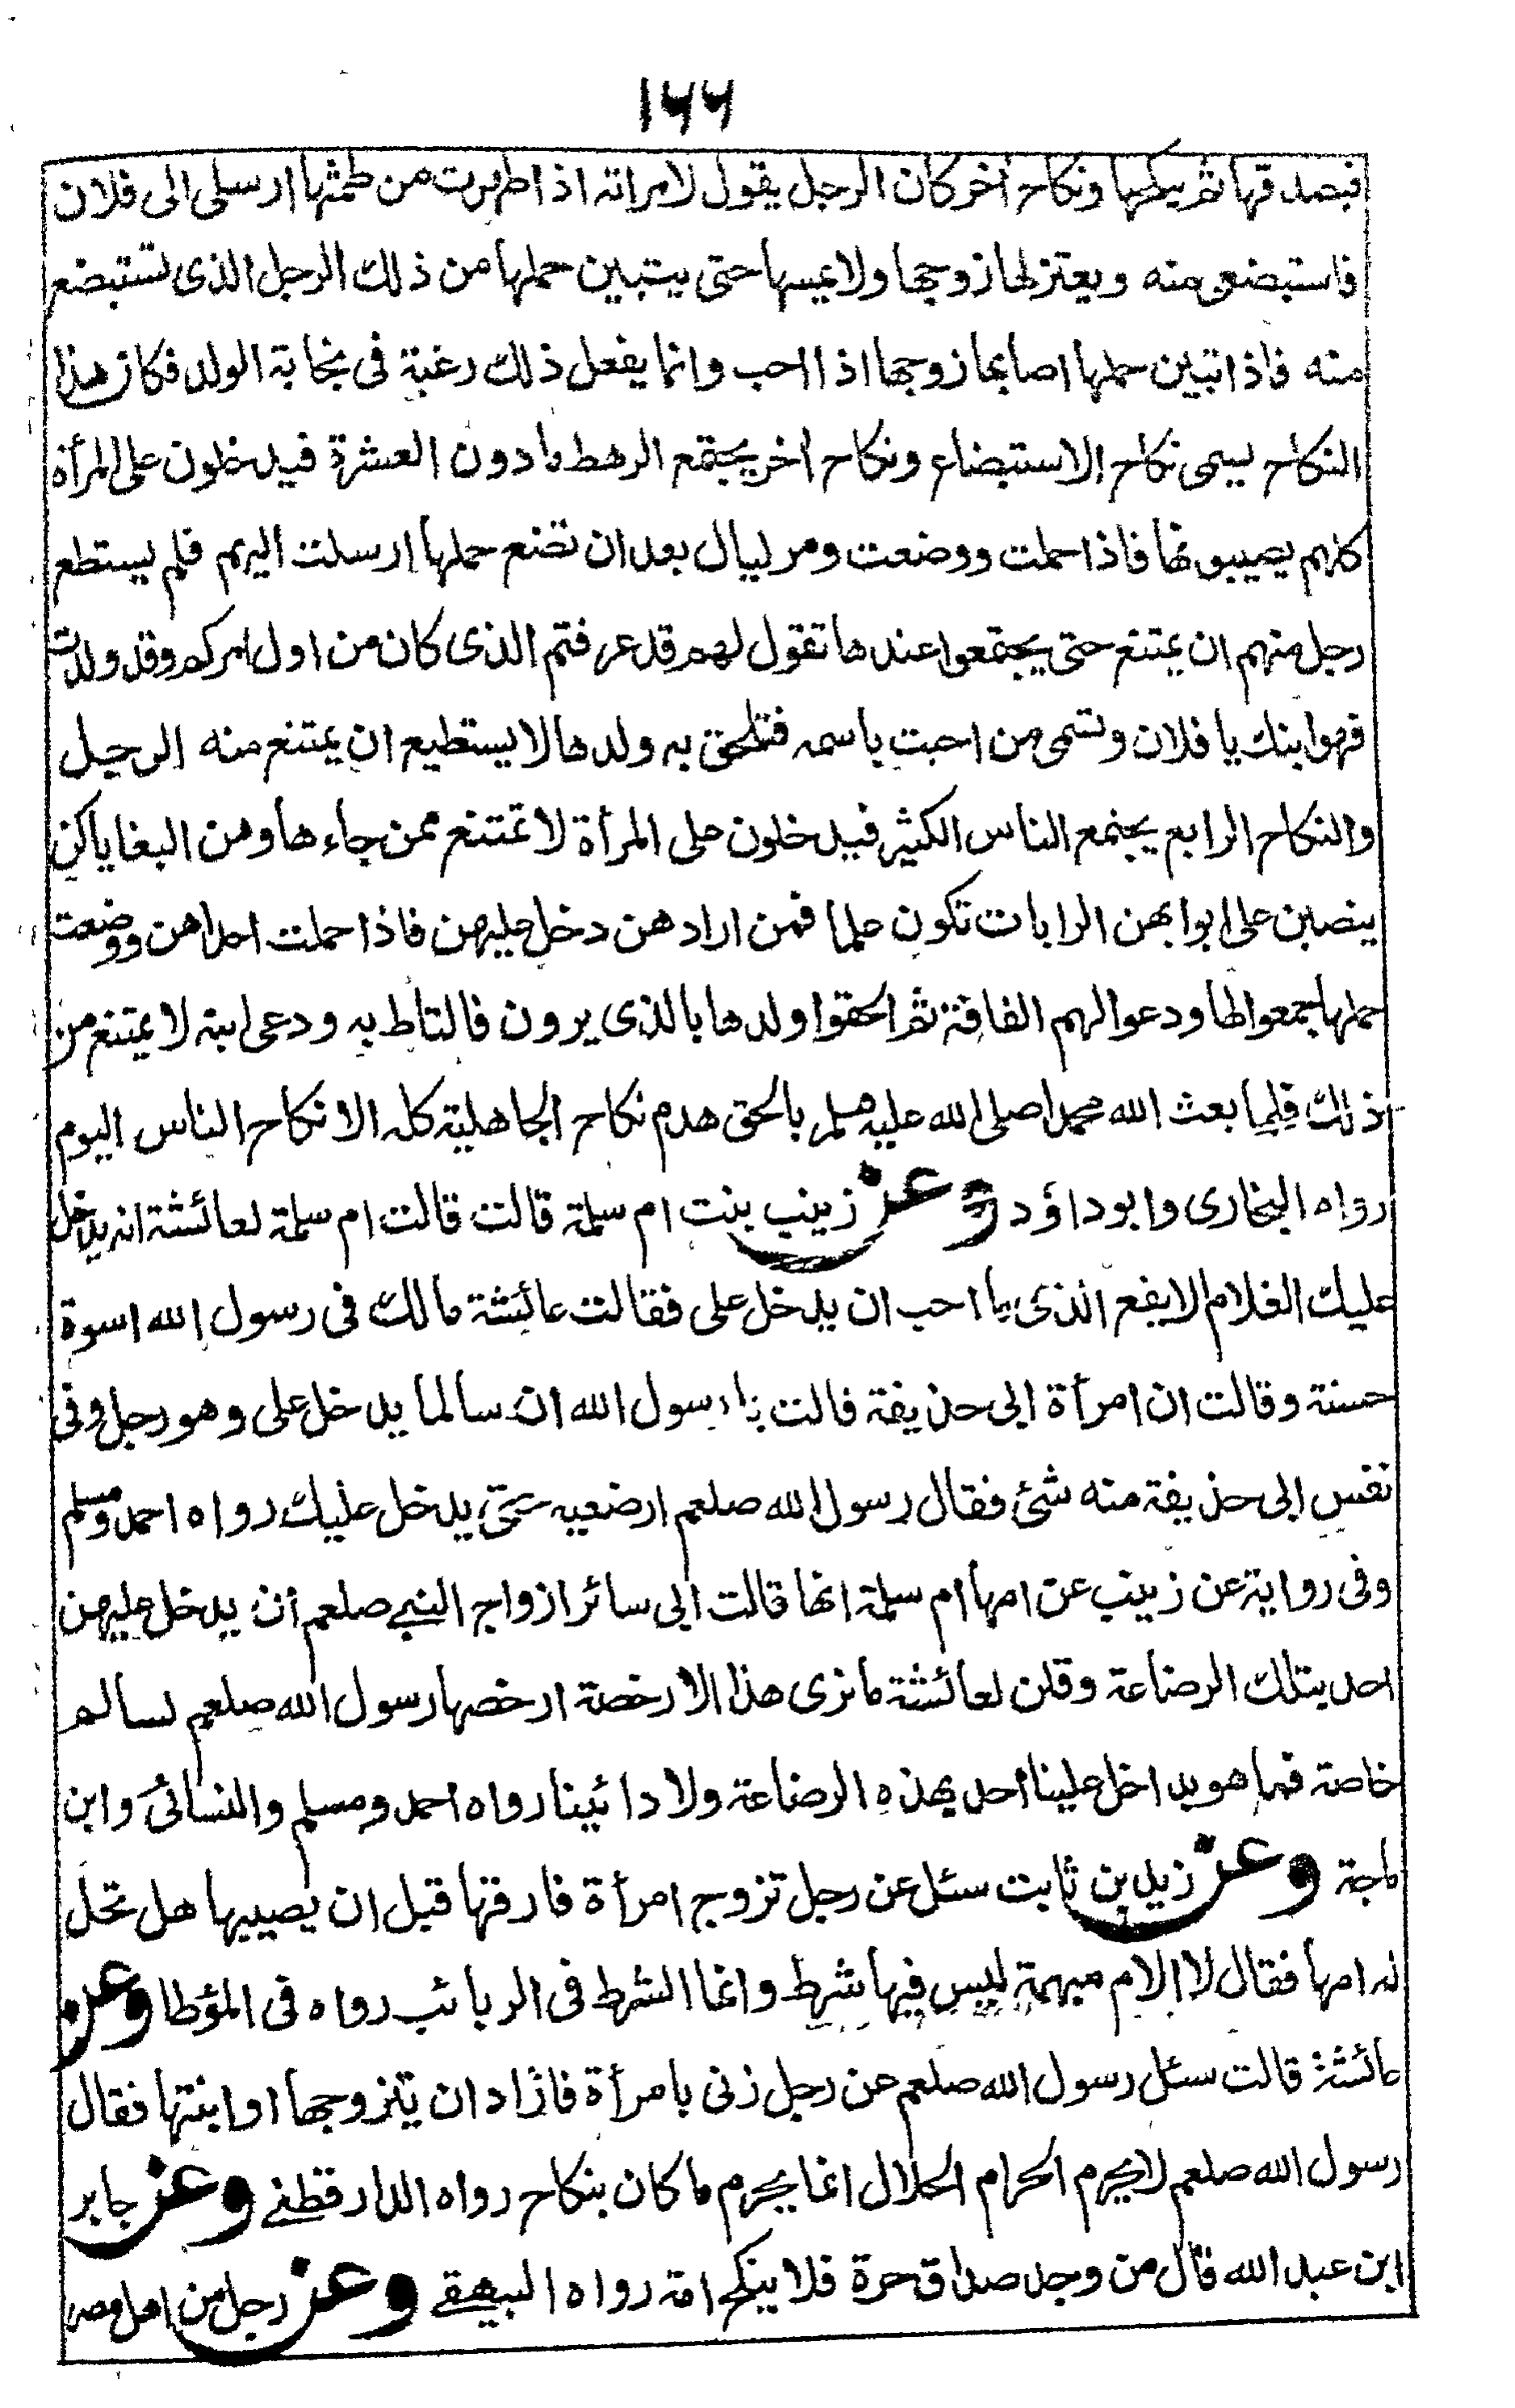 ١٦٦
فيصدقها ثم ينكحها ونكاح اخر كان الرجل يقول لامراته اذا طهرت من طمثها ارسلى الى فلان
فاستبضعى منه ويعتزلها زوجها ولا يمسها حتى يتبين حملها من ذلك الرجل الذى تستبضع
منه فاذا تبين حملها اصابها زوجها اذا احب وانما يفعل ذلك رغبة فى نجابة الولد فكان هذا
النكاح يسمى نكاح الاستبضاع ونكاح اخر يجتمع الرهط ما دون العشرة فيدخلون على المرأة
كلهم يصيبونها فاذا حملت ووضعت ومر ليال بعد ان تضع حملها ارسلت اليهم فلم يستطع
رجل منهم ان يمتنع حتى يجتمعوا عندها تقول لهم قد عرفتم الذى كان من اول امركم وقد ولدت
فهو ابنك يا فلان وتسمى من احبت باسمه فتلحق به ولدها لا يستطيع ان يمتنع منه الرجل
والنكاح الرابع يجتمع الناس الكثير فيدخلون على المرأة لا تمتنع ممن جاءها ومن البغايا كن
ينصبن على ابوابهن الرايات تكون علما فمن ارادهن دخل عليهن فاذا حملت احداهن ووضعت
حملها جمعوا لها ودعوا لهم القافة ثم الحقوا ولدها بالذى يرون فالتاط به ودعى ابنه لا يمتنع من
ذلك فلما بعث الله محمدا صلى الله عليه وسلم بالحق هدم نكاح الجاهلية كله الا نكاح الناس اليوم
رواه البخارى وابو داؤد وعن زينب بنت ام سلمة قالت قالت ام سلمة لعائشة انه يدخل
عليك الغلام الايفع الذى ما احب ان يدخل على فقالت عائشة مالك فى رسول الله اسوة
حسنة وقالت ان امرأة ابى حذيفة قالت يا رسول الله ان سالما يدخل على وهو رجل وفى
نفس ابى حذيفة منه شئ فقال رسول الله صلعم ارضعيه حتى يدخل عليك رواه احمد ومسلم
وفى رواية عن زينب عن امها ام سلمة انها قالت ابى سائر ازواج النبى صلعم أن يدخل عليهن
احد بتلك الرضاعة وقلن لعائشة ما نرى هذا الا رخصة ارخصها رسول الله صلعم لسالم
خاصة فما هو بداخل علينا أحد بهذه الرضاعة ولا دائينا رواه احمد ومسلم والنسائى وابن
ماجة وعن زيد بن ثابت سئل عن رجل تزوج امرأة فارقها قبل ان يصيبها هل تحل
له امها فقال لا الام مبهمة ليس فيها شرط وانما الشرط فى الربائب رواه فى المؤطا وعن
عائشة قالت سئل رسول الله صلعم عن رجل زنى بامرأة فاراد ان يتزوجها او ابنتها فقال
رسول الله صلعم لا يحرم الحرام الحلال انما يحرم ما كان بنكاح رواه الدارقطنى وعن جابر
ابن عبد الله قال من وجد صداق حرة فلا ينكح امة رواه البيهقى وعن رجل من اهل مصر